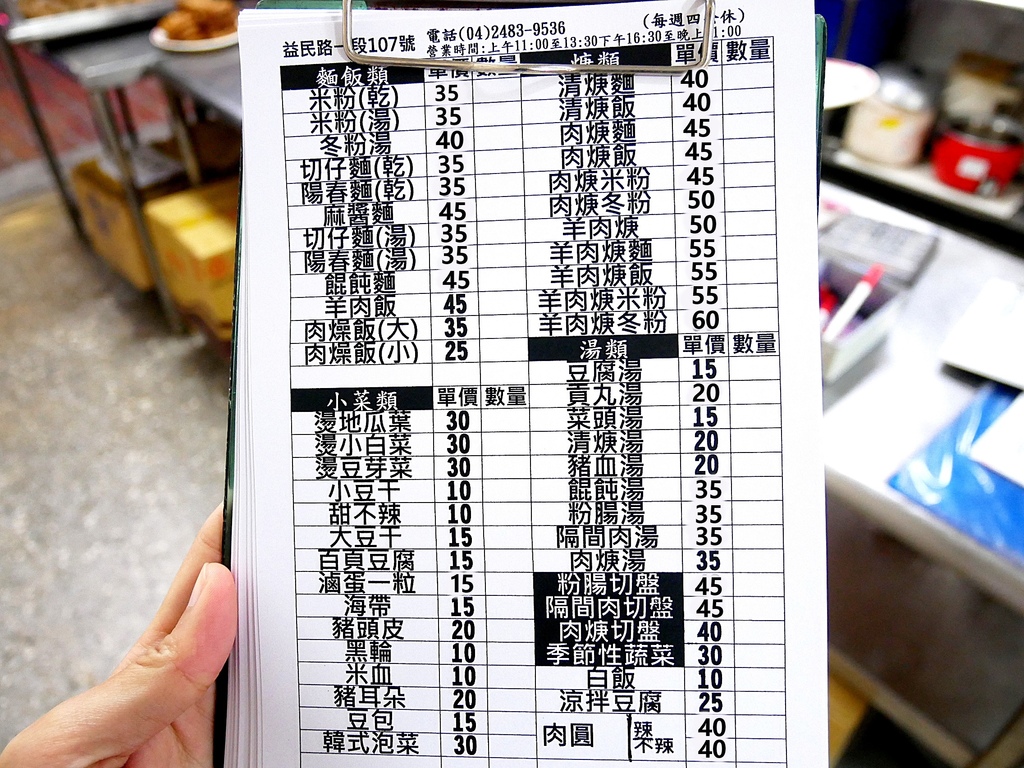 益民路一段107號 電話(04)2483-9536 (每週四公休)
營業時間:上午11:00至13:30下午16:30至晚上 1:00
麵飯類 單價 數量
米粉(乾) 35
米粉(湯) 35
冬粉湯 40
切仔麵(乾) 35
陽春麵(乾) 35
麻醬麵 45
切仔麵(湯) 35
陽春麵(湯) 35
餛飩麵 45
羊肉飯 45
肉燥飯(大) 35
肉燥飯(小) 25
小菜類 單價 數量
燙地瓜葉 30
燙小白菜 30
燙豆芽菜 30
小豆干 10
甜不辣 10
大豆干 15
百頁豆腐 15
滷蛋一粒 15
海帶 15
豬頭皮 20
黑輪 10
米血 10
豬耳朵 20
豆包 15
韓式泡菜 30
焿類 單價 數量
清焿麵 40
清焿飯 40
肉焿麵 45
肉焿飯 45
肉焿米粉 45
肉焿冬粉 50
羊肉焿 50
羊肉焿麵 55
羊肉焿飯 55
羊肉焿米粉 55
羊肉焿冬粉 60
湯類 單價 數量
豆腐湯 15
貢丸湯 20
菜頭湯 15
清焿湯 20
豬血湯 20
餛飩湯 35
粉腸湯 35
隔間肉湯 35
肉焿湯 35
粉腸切盤 45
隔間肉切盤 45
肉焿切盤 40
季節性蔬菜 30
白飯 10
涼拌豆腐 25
肉圓 辣 40
不辣 40